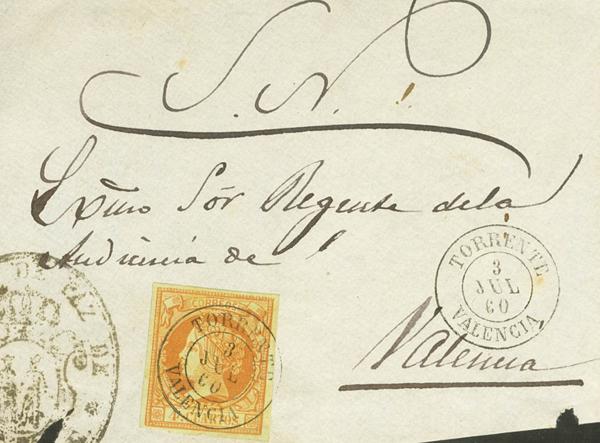 S. N.
Exmo Sôr Regente dela
Audiencia de
Valencia
TORRENTE
3
JUL
60
VALENCIA
CORREOS
TORRENTE
3
JUL
60
VALENCIA